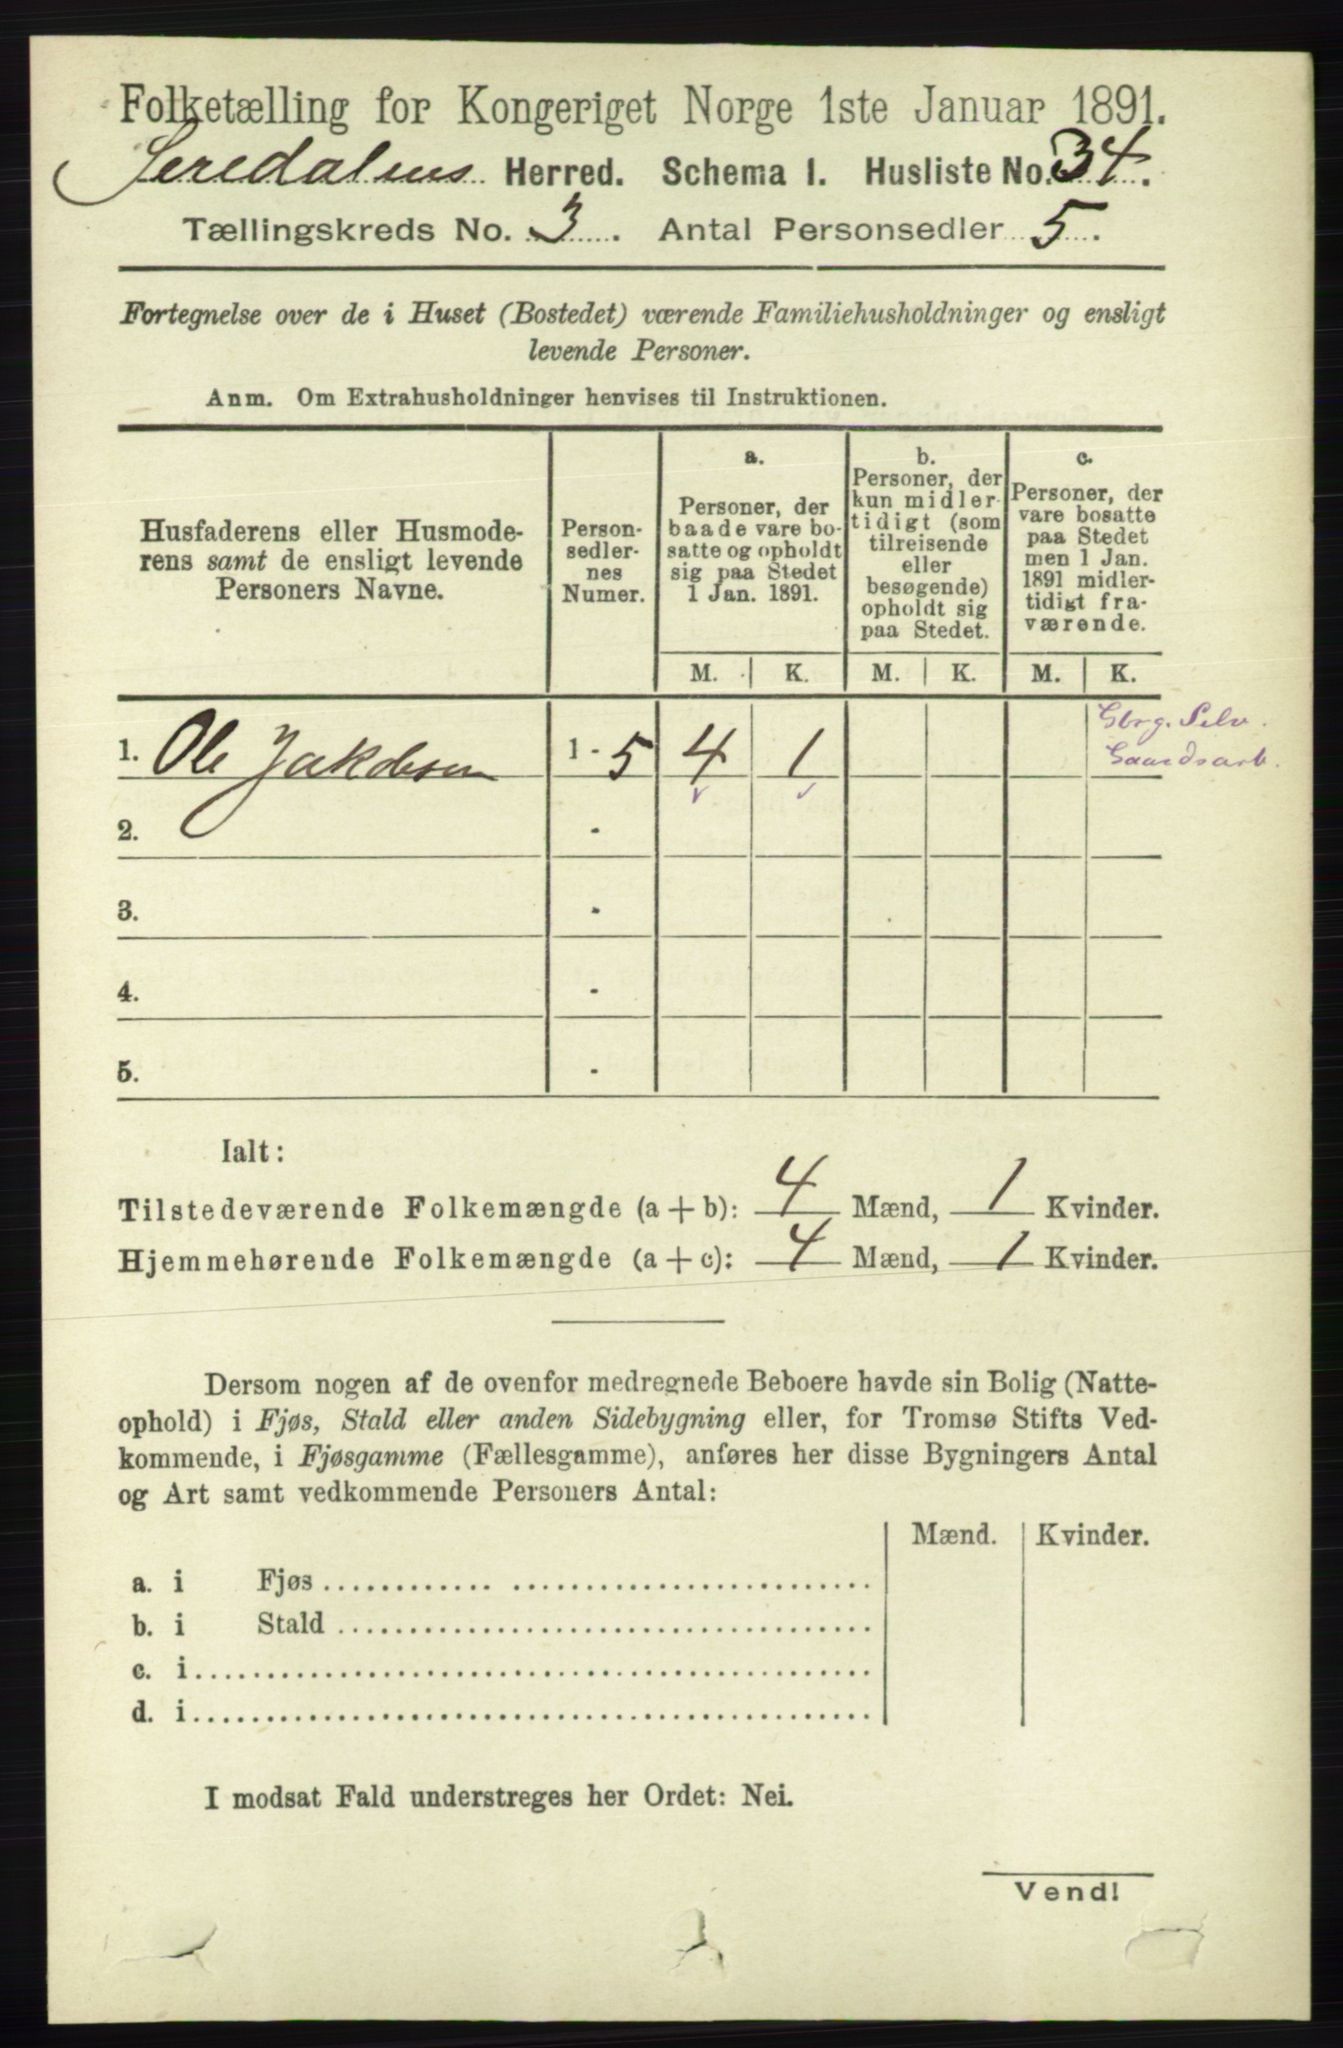 Folketælling for Kongeriget Norge 1ste Januar 1891.
Herred. Schema 1. Husliste No. 34.
Tællingskreds No. 3. Antal Personsedler 5.
Fortegnelse over de i Huset (Bostedet) værende Familiehusholdninger og ensligt
levende Personer.
Anm. Om Extrahusholdninger henvises til Instruktionen.
Husfaderens eller Husmode-
rens samt de ensligt levende
Personers Navne.
Person-
sedler-
nes
Numer.
a.
Personer, der
baade vare bo-
satte og opholdt
sig paa Stedet
1 Jan. 1891.
b.
Personer, der
kun midler-
tidigt (som
tilreisende
eller
besøgende)
opholdt sig
paa Stedet.
c.
Personer, der
vare bosatte
paa Stedet
men 1 Jan.
1891 midler-
tidigt fra-
værende.
M. K. M. K. M. K.
1. Ole Jakobsen 1 - 5 4 1
Gbrg. Selv.
Gaardsarb.
2. -
3. -
4. -
5. -
Ialt:
Tilstedeværende Folkemængde (a + b): 4 Mænd, 1 Kvinder.
Hjemmehørende Folkemængde (a + c): 4 Mænd, 1 Kvinder.
Dersom nogen af de ovenfor medregnede Beboere havde sin Bolig (Natte-
ophold) i Fjøs, Stald eller anden Sidebygning eller, for Tromsø Stifts Ved-
kommende, i Fjøsgamme (Fællesgamme), anføres her disse Bygningers Antal
og Art samt vedkommende Personers Antal:
Mænd. Kvinder.
a. i Fjøs
b. i Stald
c. i
d. i
I modsat Fald understreges her Ordet: Nei.
Vend!